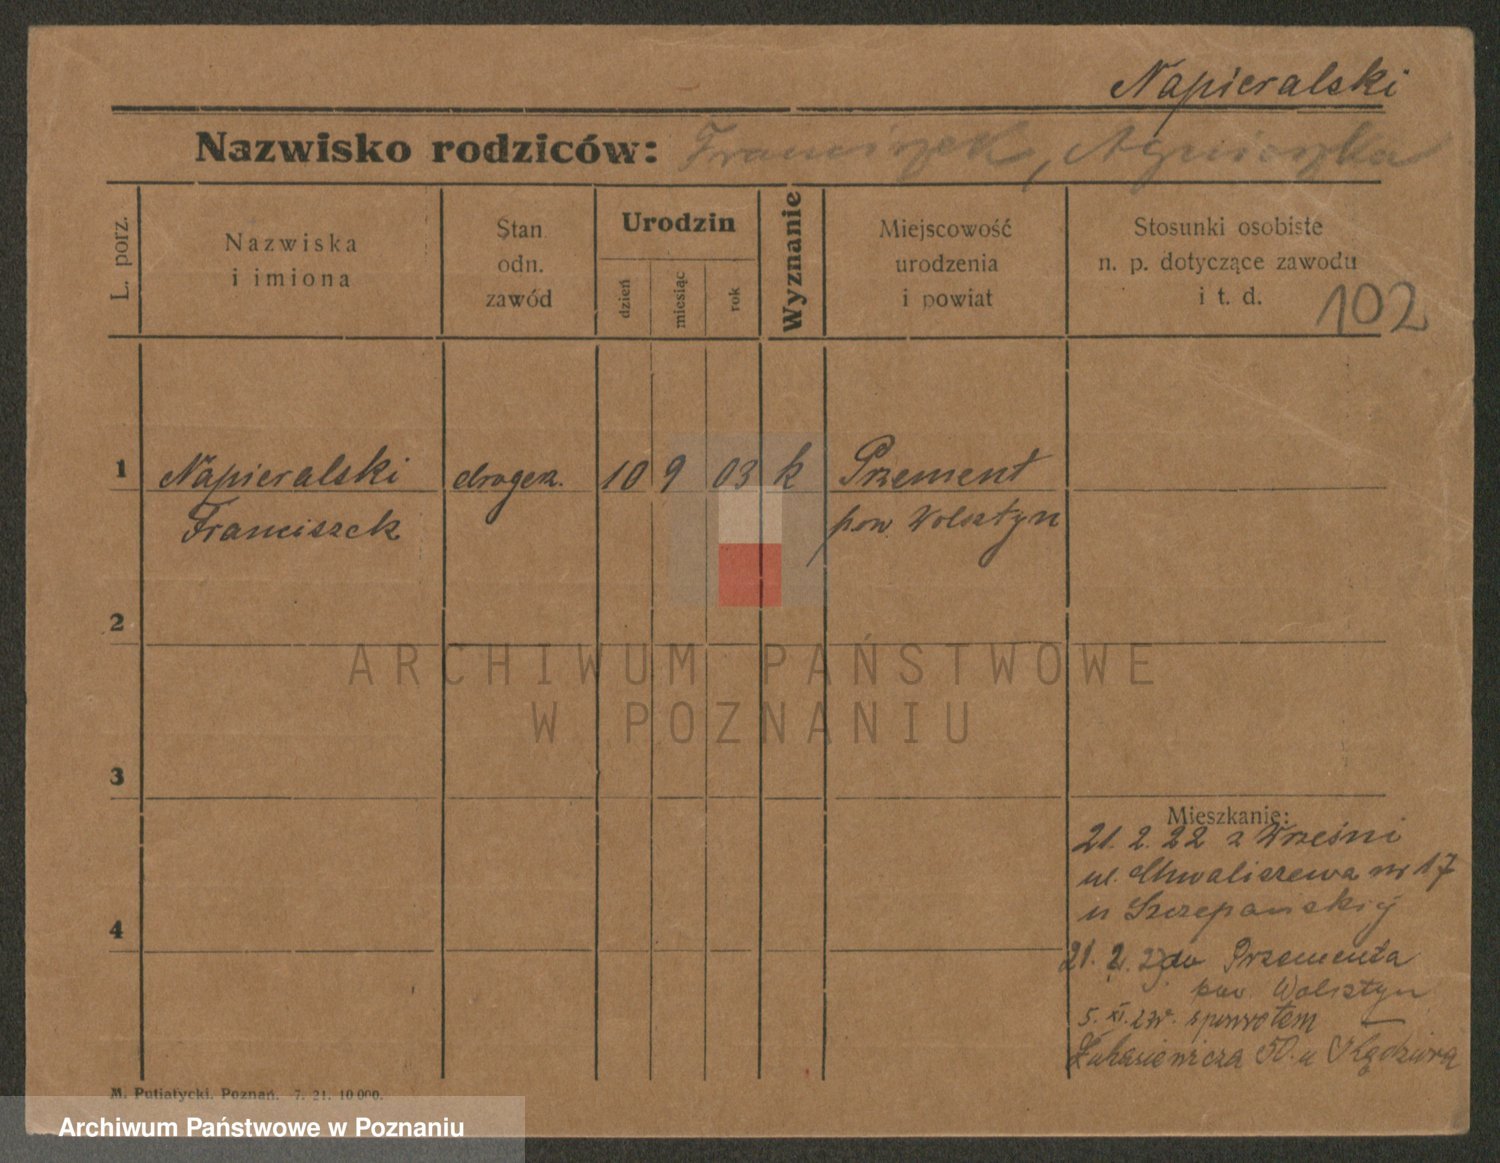 Napieralski
Nazwisko rodziców: Franciszek, Agnieszka
L. porz.
Nazwiska
i imiona
Stan
odn.
zawód
Urodzin
dzień
miesiąc
rok
Wyznanie
Miejscowość
urodzenia
i powiat
Stosunki osobiste
n. p. dotyczące zawodu
i t. d.
102
1 Napieralski drogerz. 10 9 03 k Przement
Franciszek pow Wolsztyn
2
3
4
Mieszkanie:
21. 2. 22 z Wrześni
ul. Chwaliszewa nr 17
u Szczepańskiej
21. 2. do Przementa
pow. Wolsztyn
5. XI. spowrotem
Łukasiewicza 50. u
M. Putiatycki. Poznań. 7. 21. 10 000.
ARCHIWUM PAŃSTWOWE
W POZNANIU
Archiwum Państwowe w Poznaniu